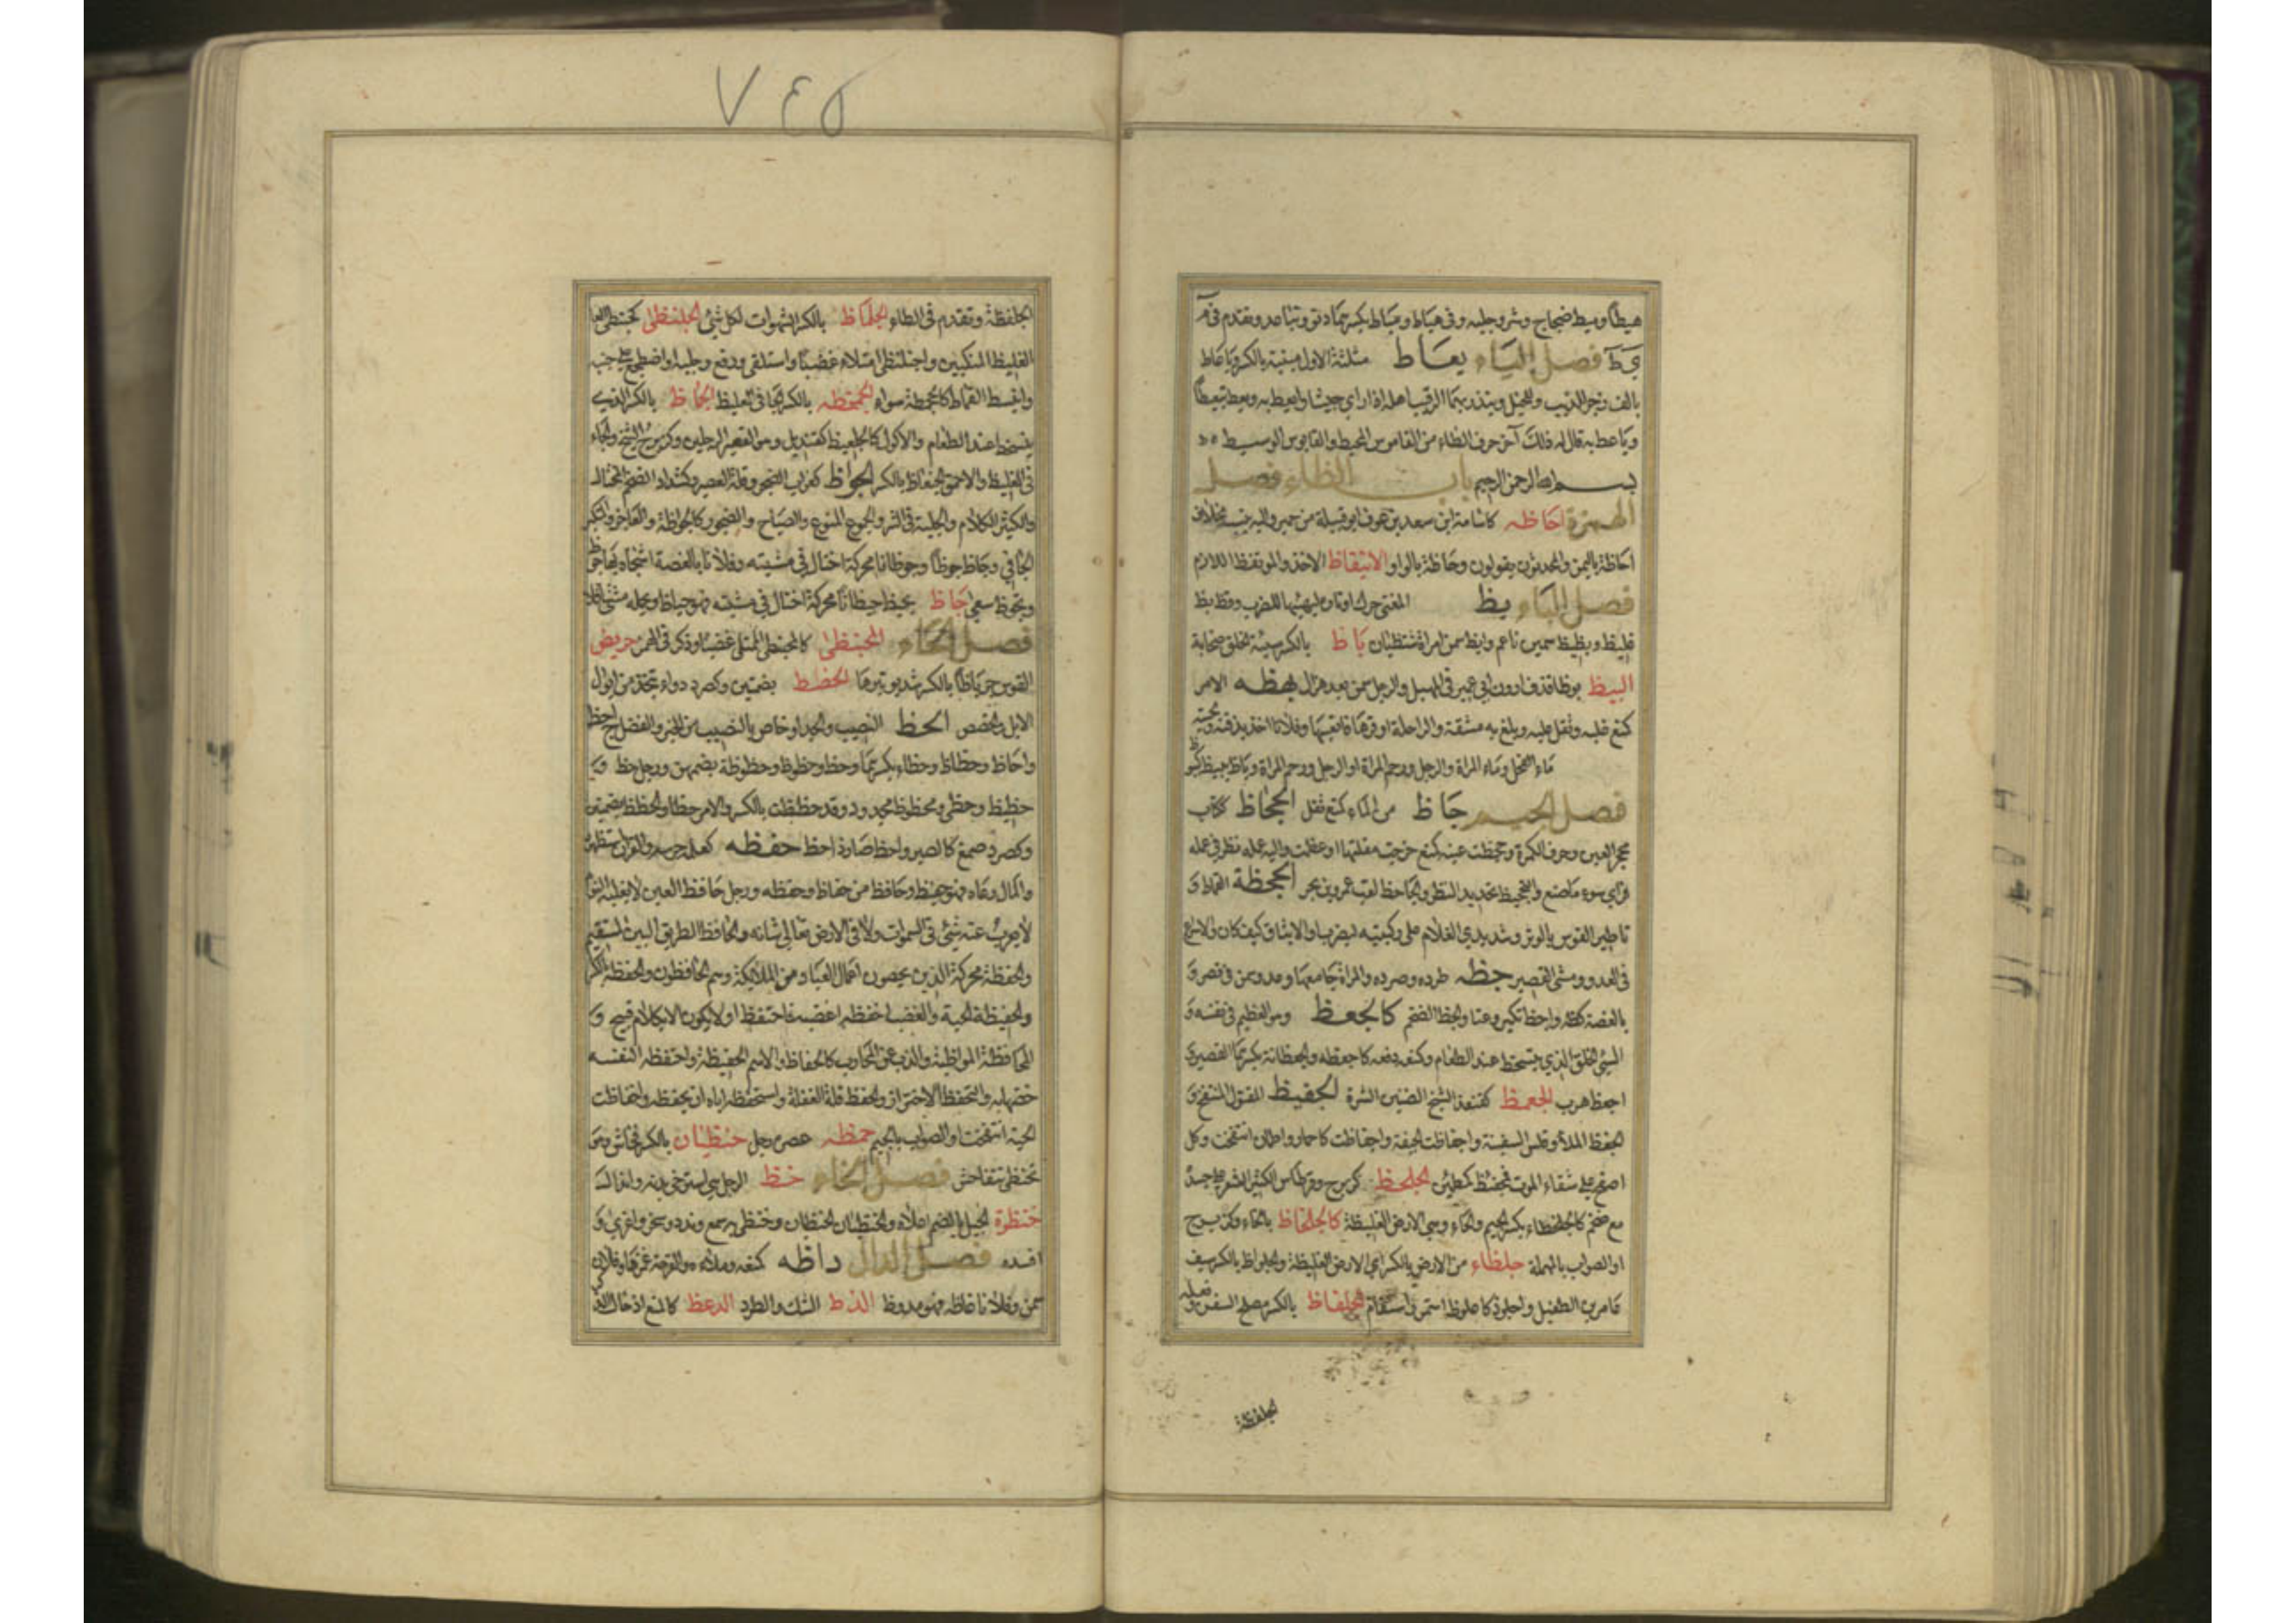 ٧٤٥
هياط وميط ضجاج وشر وجلبة وفي هياط ومياط بكسرهما دنو وتباعد وتقدم في م
ي ط فصل الياء يعاط مثلثة الاول مبنية بالكسر وياعاط
بالف زجر للذيب وللخيل وينذر بهما الرقيب اهله اذا راي جيشا وايعط به ويعط تيعيطا
وياعط به قال له ذلك آخر حرف الطاء من القاموس المحيط والقابوس الوسيط
بسم الله الرحمن الرحيم باب الظاء فصل
الهمزة احاظه كاسامة ابن سعد بن عوف ابو قبيلة من حمير واليه ينسب مخلاف
احاظة باليمن والمحدثون يقولون وحاظة بالواو الايتقاظ الاخذ والموتقظ اللازم
فصل الباء بظ المغنى حرك اوتاره ليهيئها للضرب وفظ بظ
غليظ وبظيظ سمين ناعم وابظ سمن امراة شنظيان بناظ بالكسر سيئة الخلق صخابة
البيظ بوظا قذف ارون ابي عمير في المهبل والرجل سمن بعد هزال بهظه الامر
كمنع غلبه وثقل عليه وبلغ به مشقة والراحلة اوقرها فاتعبها وفلانا اخذ بذقنه ولحيته
ماء الفحل وماء المراة والرجل ورحم المراة او الرجل ورحم المراة وباظ يبيظ
فصل الجيم جاظ من الماء كمنع ثقل الجحاظ ككتاب
محجر العين وحرف الكمرة وجحظت عينه كمنع خرجت مقلتها او عظلت واليه عمله نظر في عمله
فراي سوء ما صنع والتجحيظ تحديد النظر والجاحظ لقب عمرو بن بحر الجحمظة القماط و
تاطير القوس بالوتر وشد يدي الغلام على ركبتيه ليضرب او الايثاق كيف كان والاسراع
في العدو ومشي القصير جظه طرده وصرعه والمراة جامعها وعدو وسمن في قصر و
بالغصة كظه واجظ تكبر وعتا والجظ الضخم كالجعظ وهو العظيم في نفسه و
السيئ الخلق الذي يتسخط عند الطعام وكمنعه دفعه كاجعظه والجعظانة بكسرتها القصير
اجعظ هرب الجعمظ كقنفذ الشيخ الضنين الشره الجفيظ المقتول المنتفخ و
الجفظ الملأ وقلس السفينة واجفاظت الجيفة واجفاظت كاحمار واطمان انتفخت وكل
اصبح على شفاء الموت مجفئظ كمطمئن الجلحظ كزبرج وقرطاس الكثير الشعر على جسده
مع ضخم كالجلحظاء بكسر الجيم والحاء وهي الارض الغليظة كالجلخاظ بالخاء وكزبرج
او الصواب بالمهملة جلظاء من الارض بالكسر اي الارض الغليظة والجلواظ بالكسر سيف
عامر بن الطفيل واجلوذ كاجلوظ استمر واستقام الجلفاظ بالكسر مصلح السفن وفعله
الجلفظة
الجلفظة وتقدم في الطاء الجلماظ بالكسر الشهوات لكل شئ الجلنظى كحبنطى
الغليظ المنكبين واجلنظى امتلاء غضبا واستلقى ورفع رجليه او اضطجع على جنبه
وانبسط القماط كالجحمظة سواء الجمعظه بالكسر الجافي الغليظ الجنعاظ بالكسر الذي
يتسخط عند الطعام والاكول كالجنعيظ كقنديل وهو القصير الرجلين وكزبرج الشيخ والجافي
في الغليظ والاحمق الجنعاظ بالكسر الجواظ كغراب الضجر وقلة الصبر وكشداد الضخم المختال
والكثير الكلام والجلبة في الشر والجموع المنوع والصياح والضجور كالجواظة والفاجر والمتكبر
الجافي وجاظ جوظا وجوظانا محركة اختال في مشيته وفلانا بالغصة اشجاه
وتجوظ سعى جاظ يجيظ جيظانا محركة اختال في مشيته فهو جياظ وبحمله مشى مثقلا
فصل الحاء المحبنظئ كالمحبنطئ الممتلئ غضبا وذكر في الهمز حربض
القوس حرباظا بالكسر شد يوتيرها الحضظ بضمتين وكصرد دواء يتخذ من ابوال
الابل والحضض الحظ النصيب والجد او خاص بالنصيب من الخير والفضل ج احظ
واحاظ وحظاظ وحظاء بكسرهما وحظ وحظوظ وحظوظة بضمهن ورجل حظ و
حظيظ وحظي ومحظوظ مجدود وقد حظظت بالكسر والامر حظا والحظظ بضمتين
وكصرد صمغ كالصبر واحظ صار ذا حظ حفظه كعلمه حرسه والقران استظهره
والمال رعاه فهو حفيظ وحافظ من حفاظ وحفظه ورجل حافظ العين لا يغلبه النوم
لا يعزب عنه شئ في السموات ولا في الارض تعالى شانه والحافظ الطريق البين المستقيم
والحفظة محركة الذين يحصون اعمال العباد من الملائكة وهم الحافظون والحفظة بالكسر
والحفيظة الحمية والغضب احفظه اغضبه فاحتفظ او لا يكون الا بكلام قبيح و
المحافظة المواظبة والذب عن المحارب كالحفاظ والاسم الحفيظة واحتفظه لنفسه
خصها به والتحفظ الاحتراز والحفظ قلة الغفلة واستحفظه اياه ان يحفظه واحفاظت
الحية انتفخت او الصواب بالجيم حمظه عصره رجل حنظيان بالكسر فحاش وهو
يحنظى يتفاحش فصل الخاء خظ الرجل استرخى بدنه واندال
خنظرة الجبل بالضم اعلاه والخنظيان الحنظيان وخنظى به سمع وندد وسخر واغرى و
افسد فصل الدال داظه كمنعه وملأه والقرحة غمزها وفلان
سمن وفلانا غاظه فهو مدوظ الدظ الشك والطرد الدعظ كالمنع ادخال